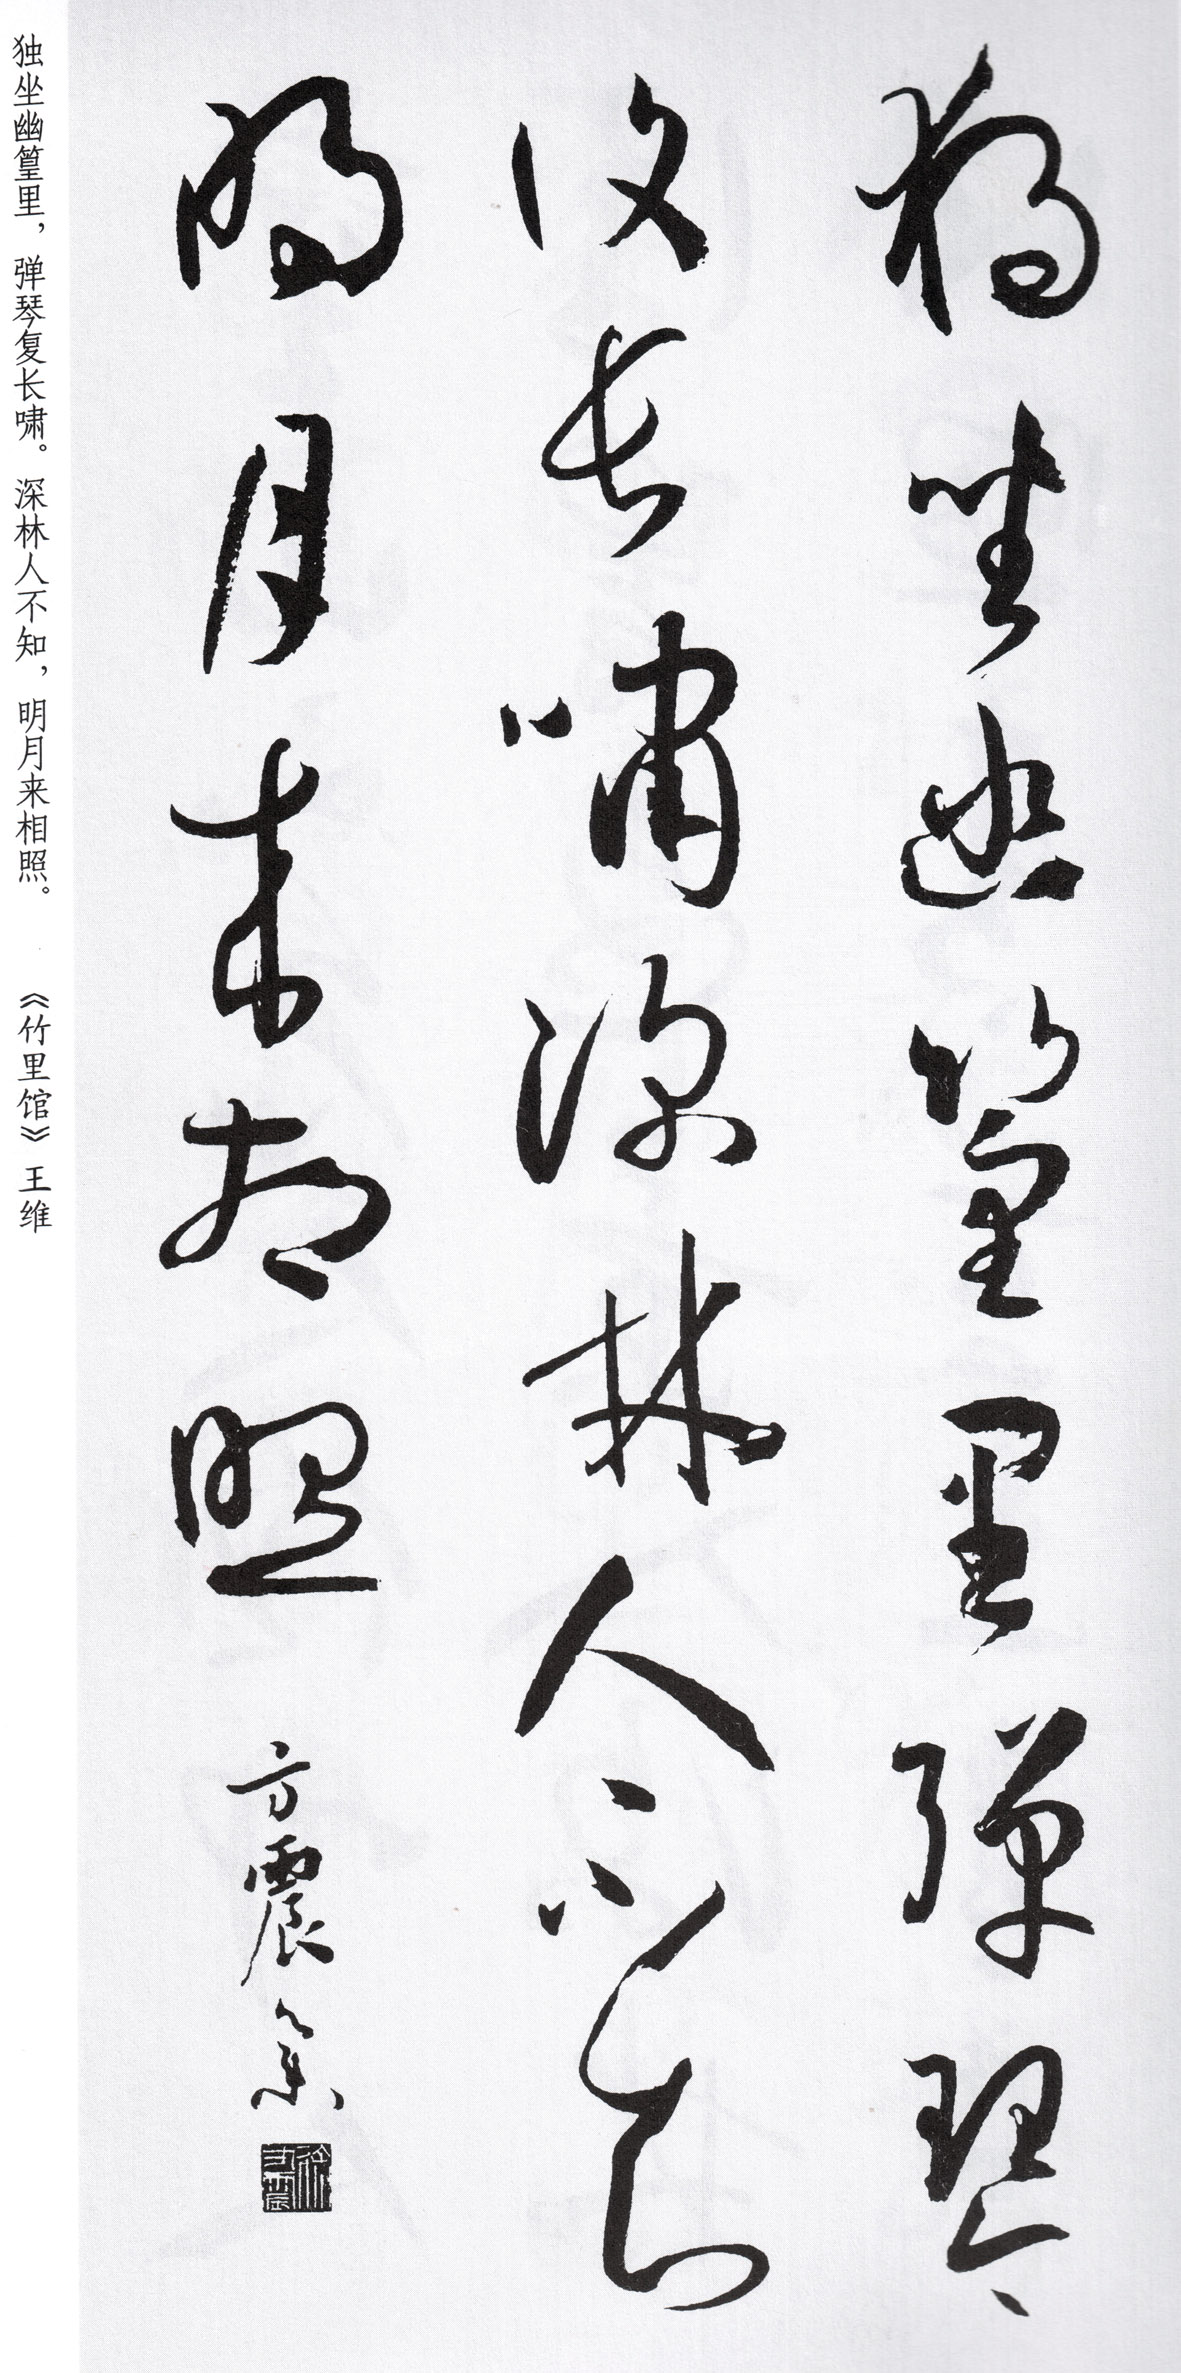 獨坐幽篁里彈琴
復長嘯深林人不知
明月来相照
方震書
独坐幽篁里，弹琴复长啸。深林人不知，明月来相照。 《竹里馆》王维